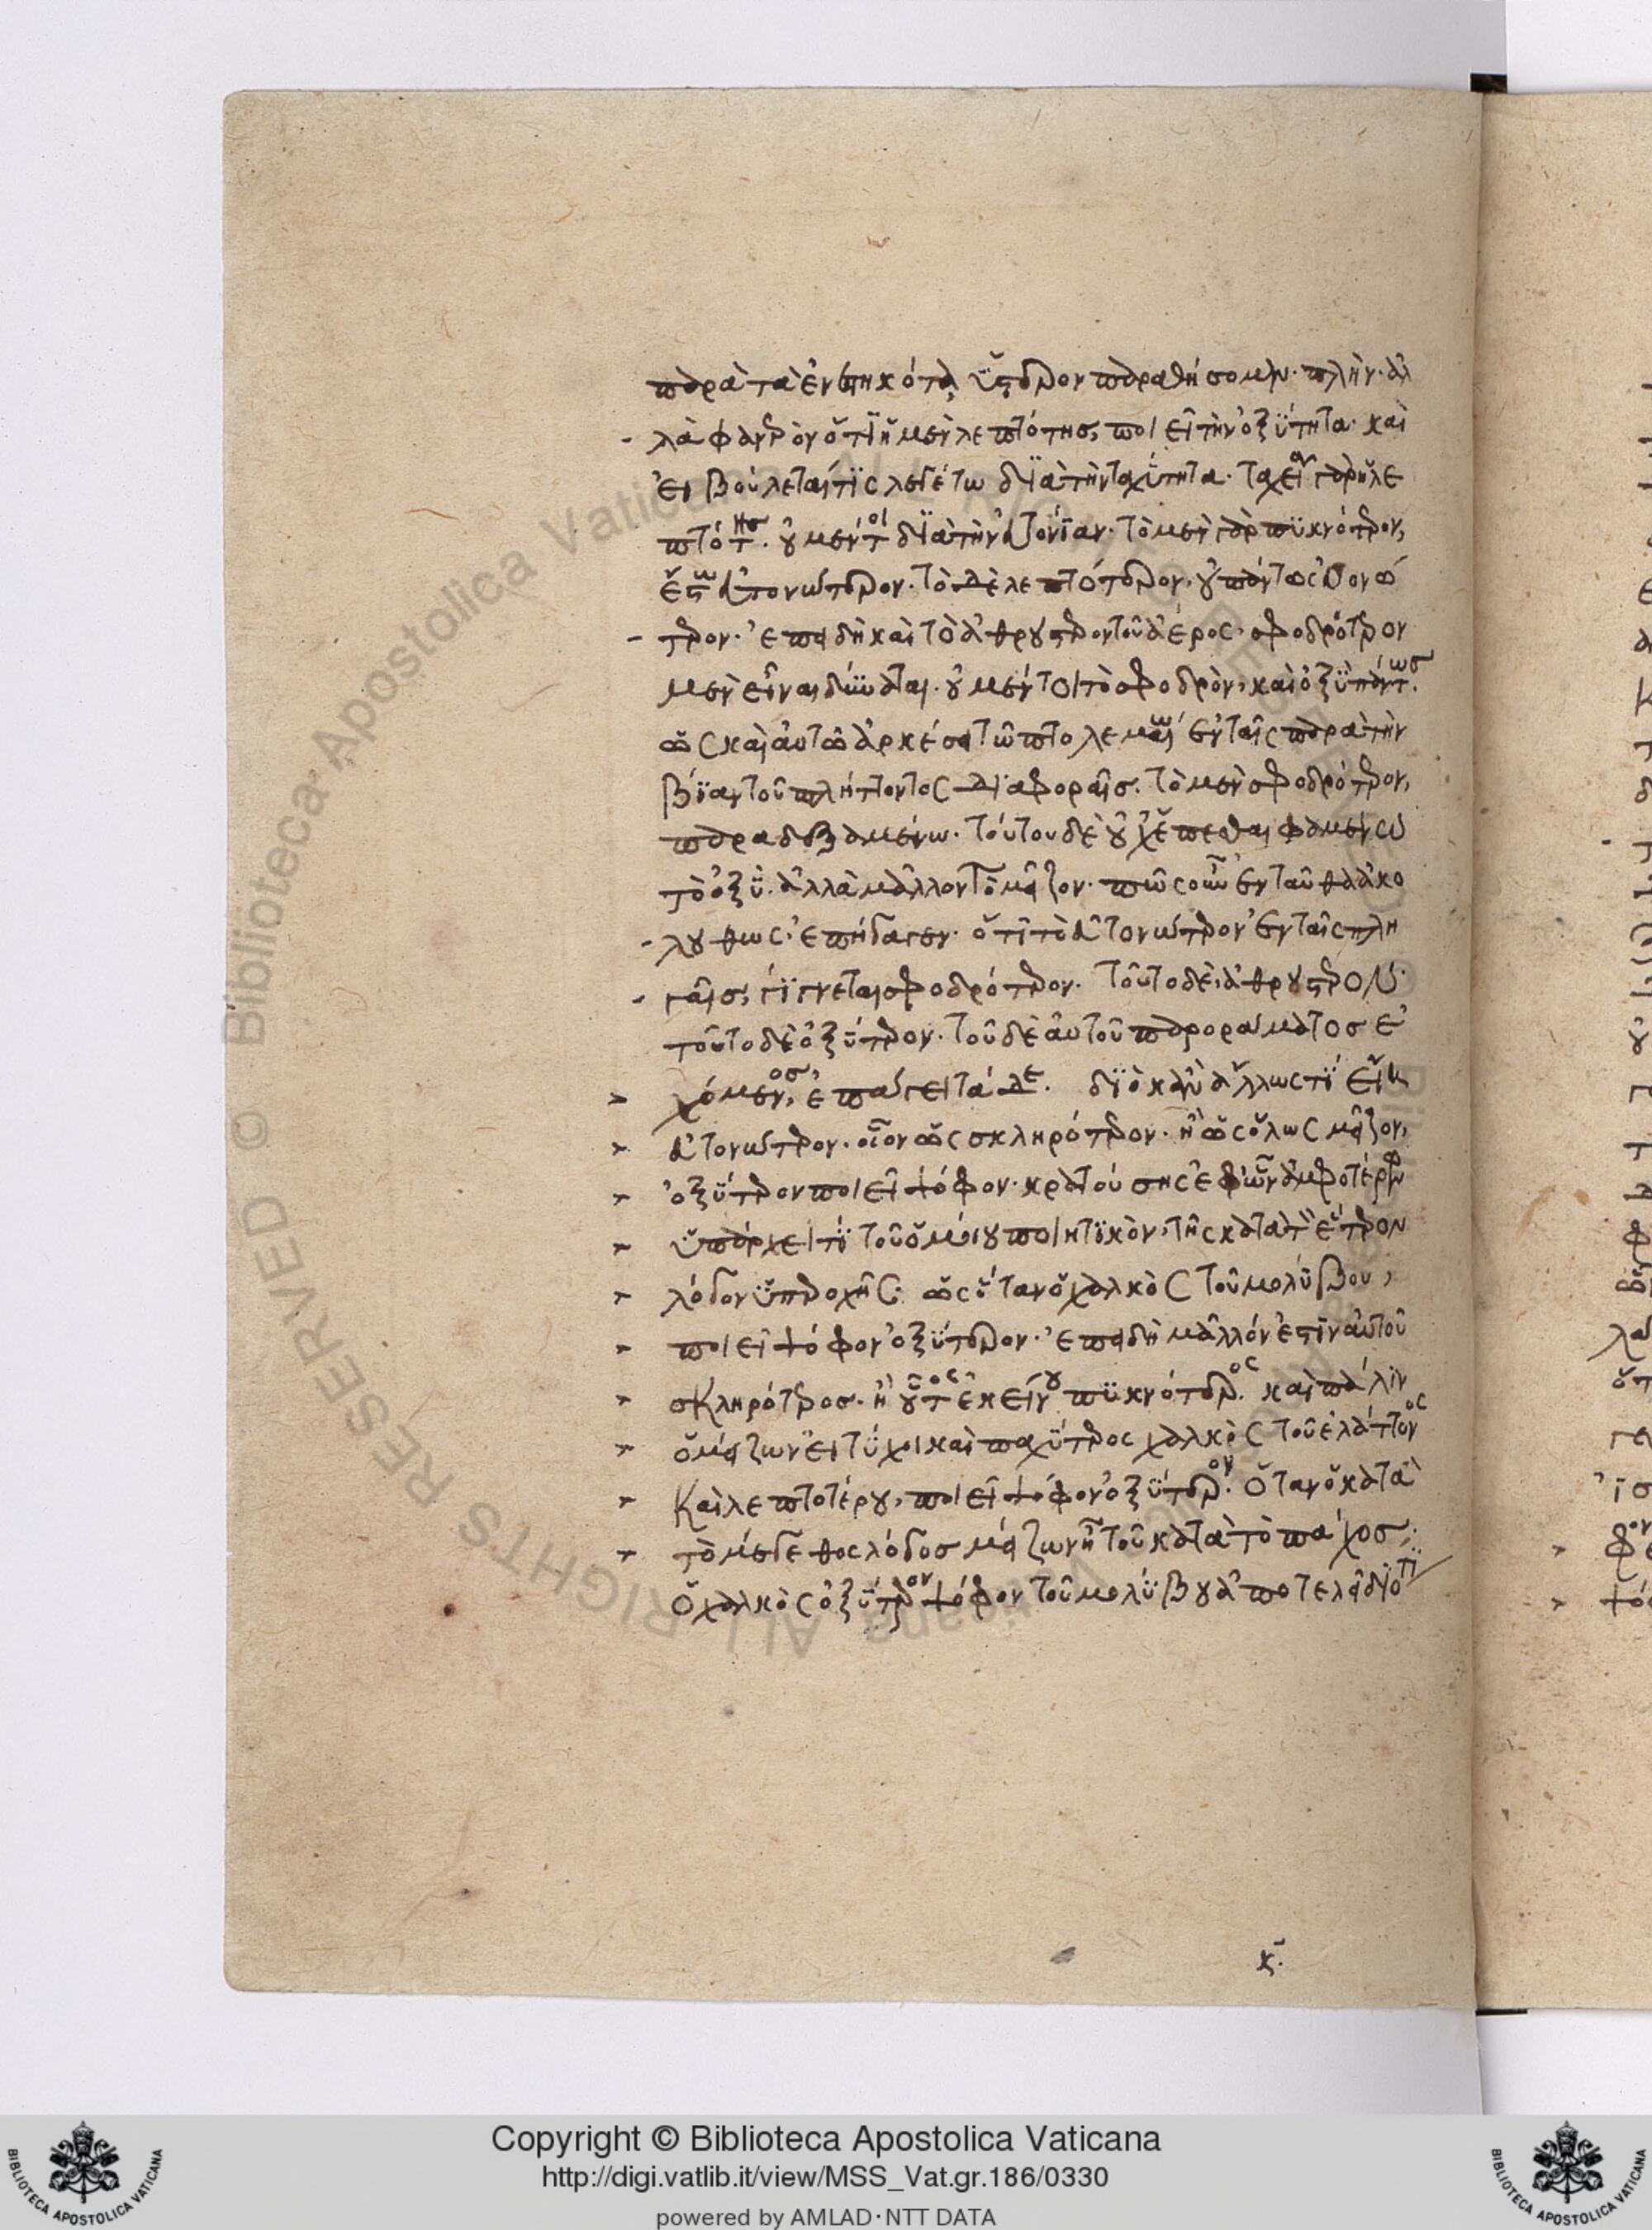 παρὰ τὰ ἐνεστηκότα, ὕστερον παραθήσομεν. πλὴν ἀλ
λὰ φανερὸν ὅτι ἡ μὲν λεπτότης, ποιεῖ τὴν ὀξύτητα. καὶ
εἰ βούλεταί τις λεγέτω διὰ τὴν ταχύτητα. ταχεῖα γὰρ ἡ λε
πτότης. οὐ μέντοι διὰ τὴν εὐτονίαν. τὸ μὲν γὰρ πυκνότερον,
ἔστω εὐτονώτερον. τὸ δὲ λεπτότερον, οὐ πάντως εὐτονώ
τερον. ἐπειδὴ καὶ τὸ ἀθρούστερον τοῦ ἀέρος, σφοδρότερον
μὲν εἶναι δύναται. οὐ μέντοι τὸ σφοδρὸν, καὶ ὀξὺ πάντως.
ὡς καὶ αὐτῶ ἀρκέσει τῶ πτολεμαίω ἐν ταῖς παρὰ τὴν
βίαν τοῦ πλήττοντος διαφοραῖς. τὸ μὲν σφοδρότερον,
παραδεξαμένω. τούτου δὲ οὐχ ἕπεσθαι φαμένω
τὸ ὀξύ. ἀλλὰ μᾶλλον τὸ μεῖζον. πῶς οὖν ἐνταῦθα ἀκο
λούθως ἐπήγαγεν. ὅτι τὸ εὐτονώτερον ἐν ταῖς πλη
γαῖς, γίγνεται σφοδρότερον. τοῦτο δὲ, ἀθρούστερον.
τοῦτο δὲ ὀξύτερον. τοῦ δὲ αὐτοῦ παροράματος ἐ
χόμενος, ἐπάγει τάδε. διὸ κἂν ἄλλως τί εἴη
εὐτονώτερον. οἷον ὡς σκληρότερον. ἢ ὡς ὅλως μεῖζον,
ὀξύτερον ποιεῖ ψόφον. κρατούσης ἐφ' ὧν ἀμφοτέρων
ὑπάρχει τί τοῦ ὁμοίου ποιητικὸν, τῆς κατὰ τὸν ἕτερον
λόγον ὑπεροχῆς. ὡς ὅταν ὁ χαλκὸς τοῦ μολύβου,
ποιεῖ ψόφον ὀξύτερον. ἐπειδὴ μᾶλλόν ἐστιν αὐτοῦ
σκληρότερος. ἢ οὗτος ἐκείνου πυκνότερος. καὶ πάλιν
ὁ μείζων εἰ τύχοι καὶ παχύτερος χαλκὸς τοῦ ἐλάττονος
καὶ λεπτοτέρου, ποιεῖ ψόφον ὀξύτερον. ὅταν ὁ κατὰ
τὸ μέγεθος λόγος μείζων ἢ τοῦ κατὰ τὸ πάχος;
ὁ χαλκὸς ὀξύτερον ψόφον τοῦ μολύβου ἀποτελεῖ διότι
κϛ.
Copyright © Biblioteca Apostolica Vaticana
http://digi.vatlib.it/view/MSS_Vat.gr.186/0330
powered by AMLAD·NTT DATA